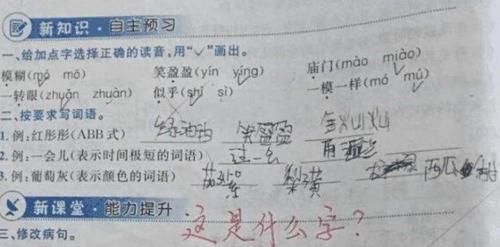 新知识·自主预习
一、给加点字选择正确的读音,用“✓”画出。
模糊(mó mō) 笑盈盈(yín yíng) 庙门(mào miào)
一转眼(zhuǎn zhuàn) 似乎(shì sì) 一模一样(mó mú)
二、按要求写词语。
1. 例:红彤彤(ABB式) 绿油油 笑盈盈 金灿灿
2. 例:一会儿(表示时间极短的词语)
3. 例:葡萄灰(表示颜色的词语) 茄子紫 梨黄 西瓜
新课堂·能力提升
这是什么字?
三、修改病句。